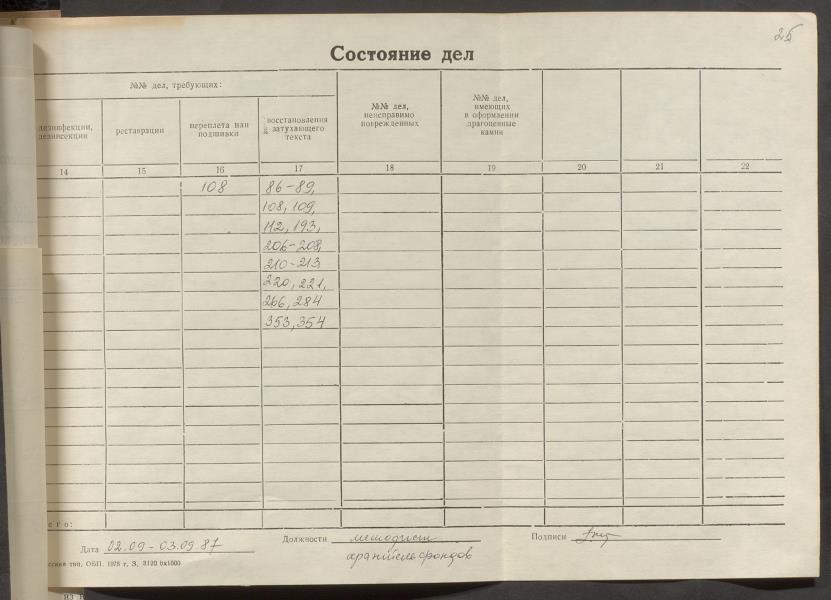 25
Состояние дел
№№ дел, требующих:
дезинфекции,
дезинсекции
реставрации
переплета или
подшивки
восстановления
затухающего
текста
№№ дел,
неисправимо
поврежденных
№№ дел,
имеющих
в оформлении
драгоценные
камни
14 15 16 17 18 19 20 21 22
108 86-89,
108, 109,
112, 193,
206-208,
210-213
220, 221,
266, 284
353, 354
его:
Дата 02.09-03.09.87 Должности методист Подписи
хранитель фондов
тип. ОБП. 1978 г. З. 3120 5х1000